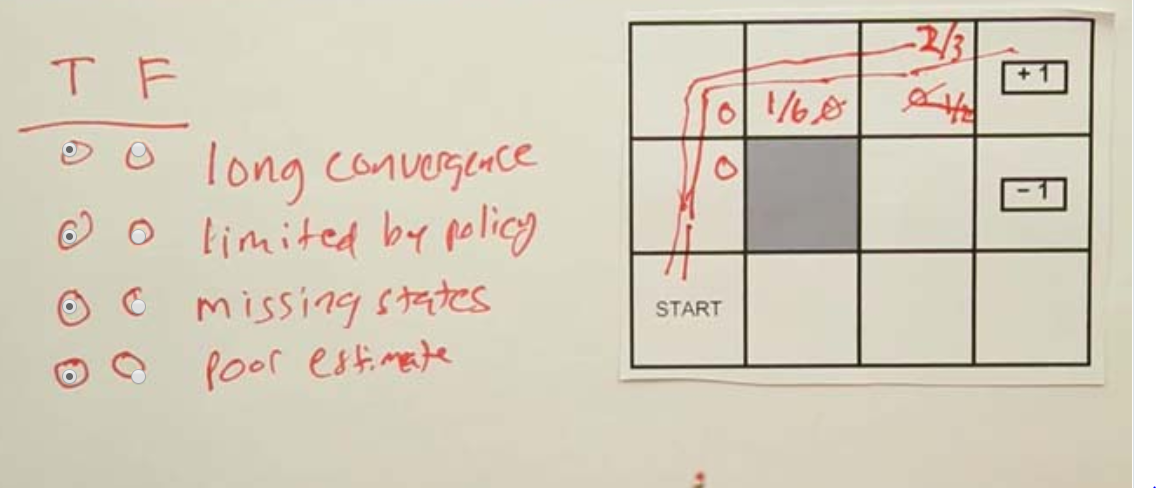 T F
long convergence
limited by policy
missing states
poor estimate
2/3
+ 1
0 1/6 0 0 1/2
0
- 1
START